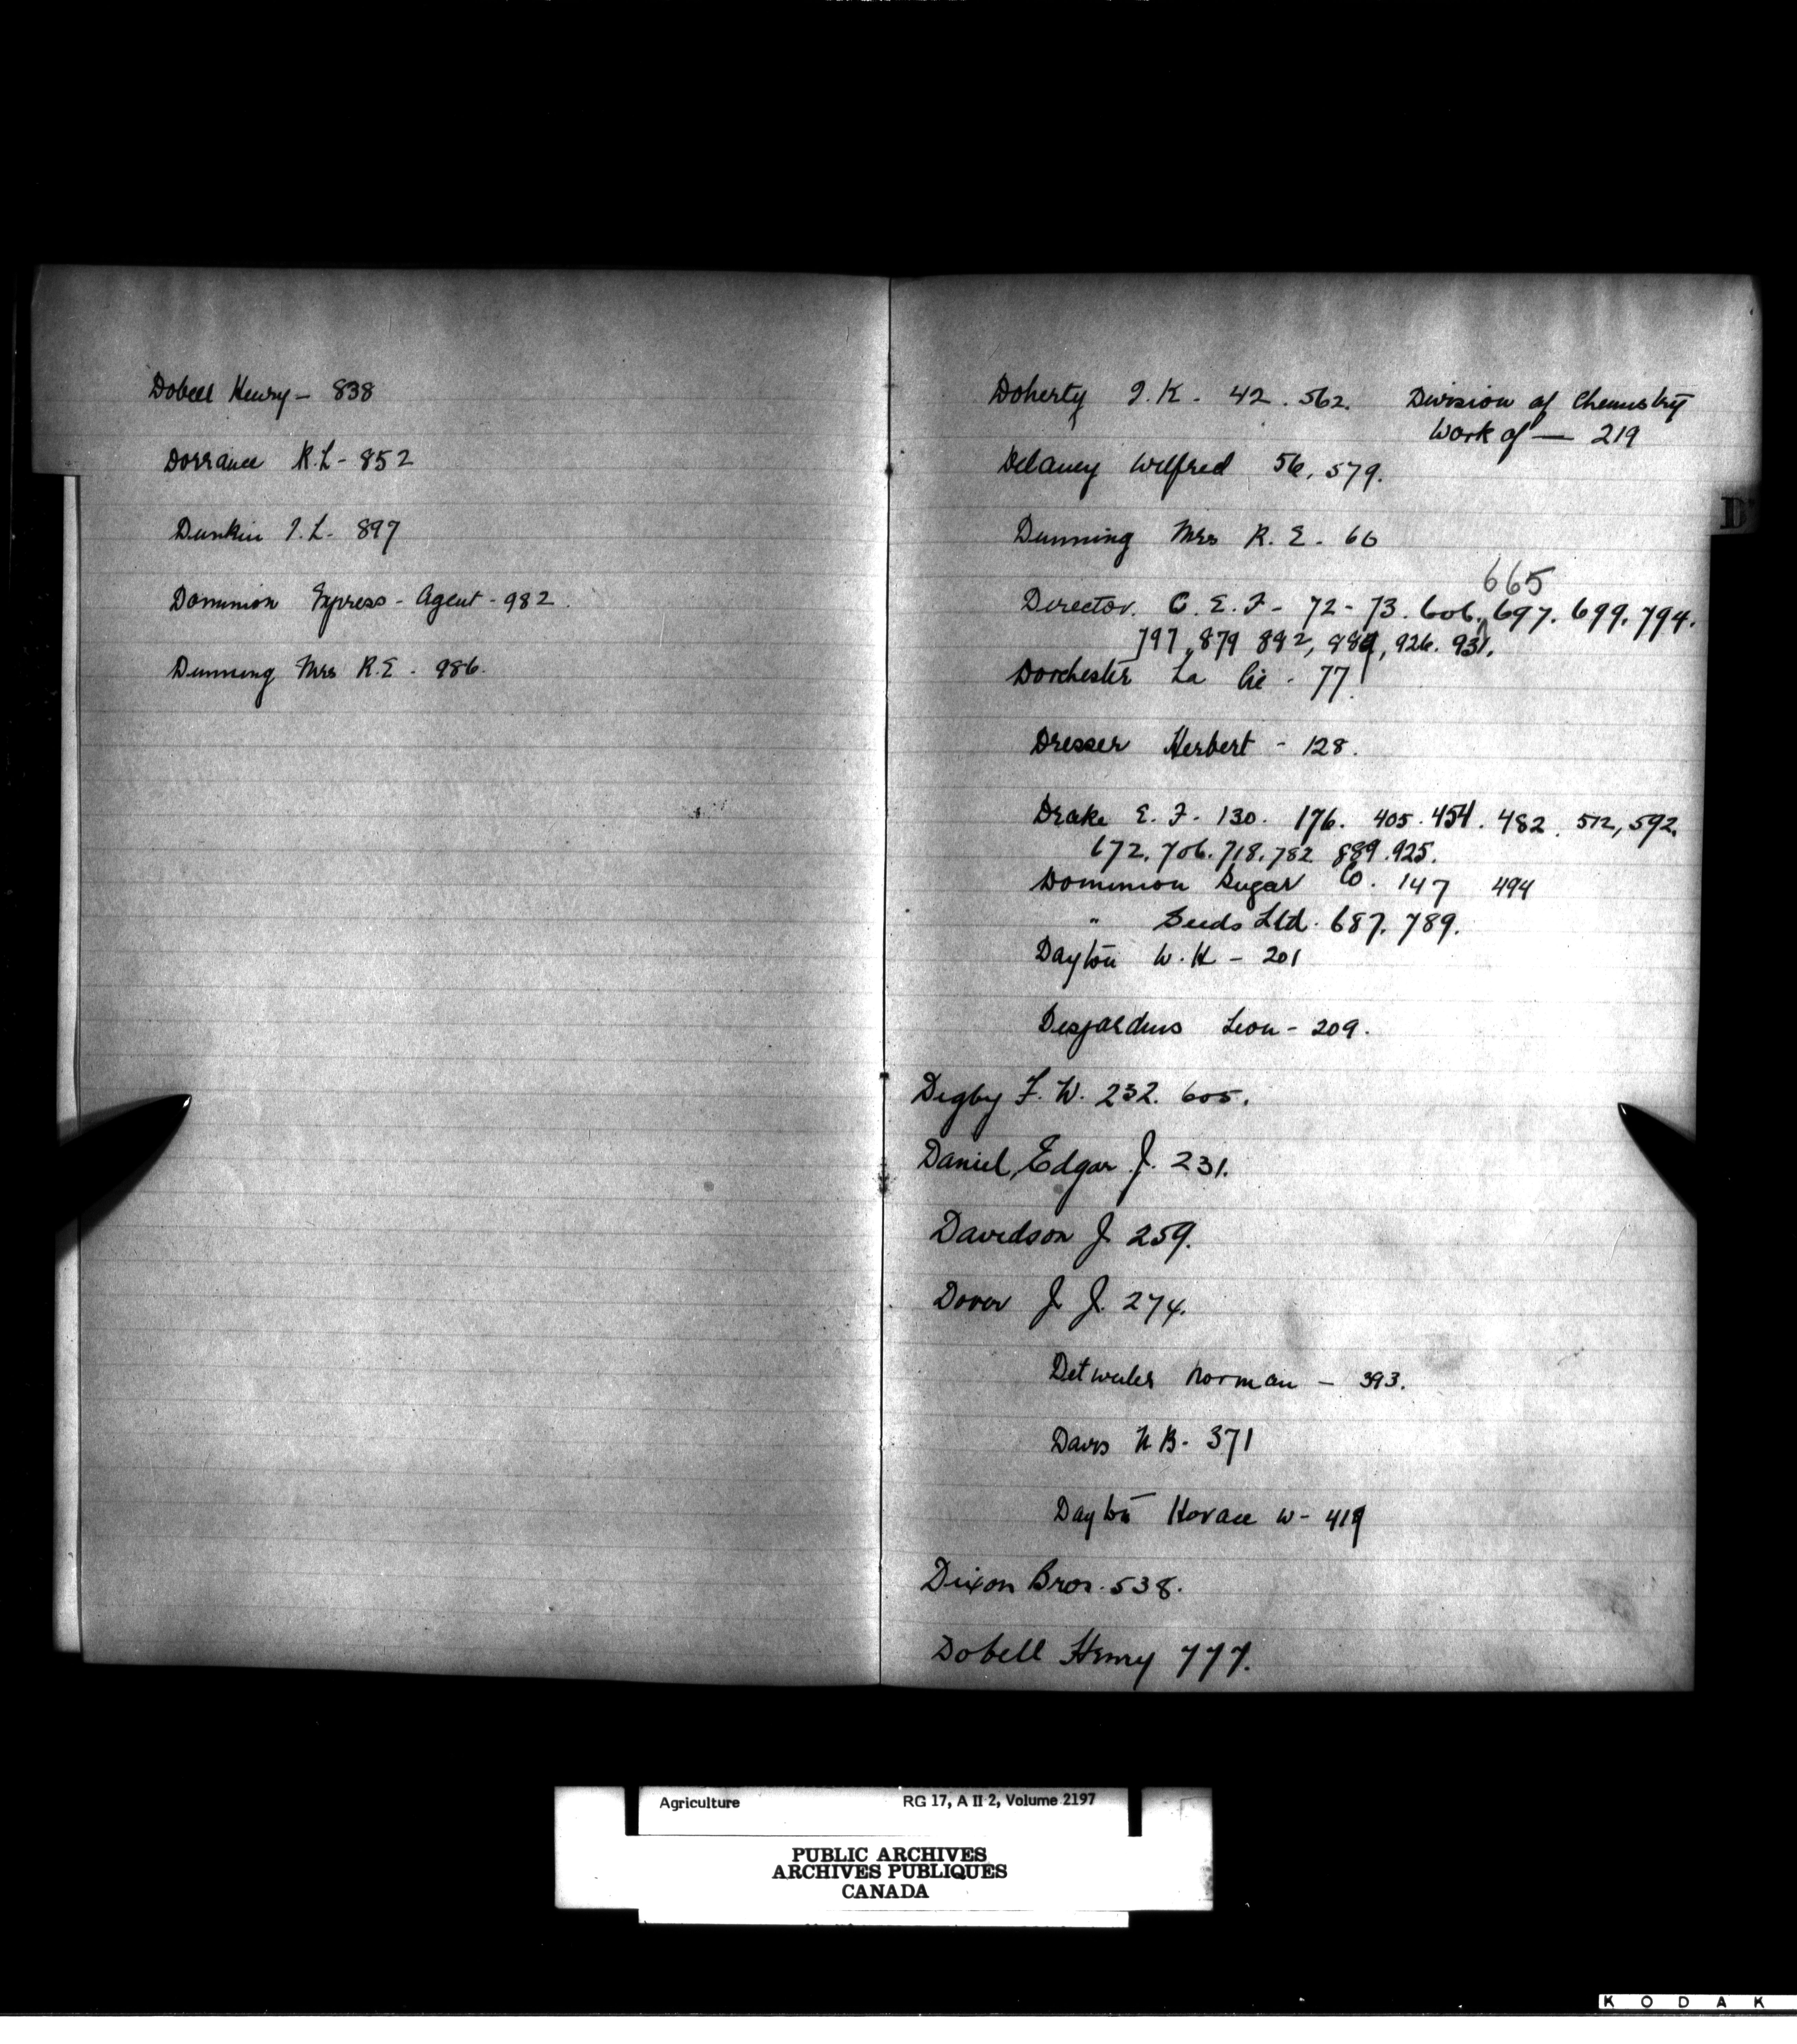 Dobell Henry - 838
Dorrance R.L - 852
Dunkin J.L. 897
Dominion Express - Agent - 982.
Dunning Mrs R.E. - 986.
Doherty J.K. - 42. 562.
Division of Chemistry
Work of — 219
Delaney Wilfred 56, 579.
Dunning Mrs R. E. - 66
665
Director. C. E. F - 72 - 73. 606. 697. 699. 794.
797, 879 882, 926. 931.
Dorchester La Cie - 77.
Dresser Herbert - 128.
Drake E. F. 130. 176. 405. 454. 482. 572, 592.
672. 706. 718. 782 889. 925.
Dominion Sugar Co. 147 494
" Seeds Ltd. 687. 789.
Dayton W. H - 201
Desjardins Leon - 209.
Digby F. W. 232. 605.
Daniel, Edgar J. 231.
Davidson J. 259.
Dover J. J. 274.
Detwiler Norman - 393.
Davis N B. 371
Dayton Horace W - 419
Dixon Bros. 538.
Dobell Henry 777.
D
Agriculture RG 17, A II 2, Volume 2197
PUBLIC ARCHIVES
ARCHIVES PUBLIQUES
CANADA
KODAK